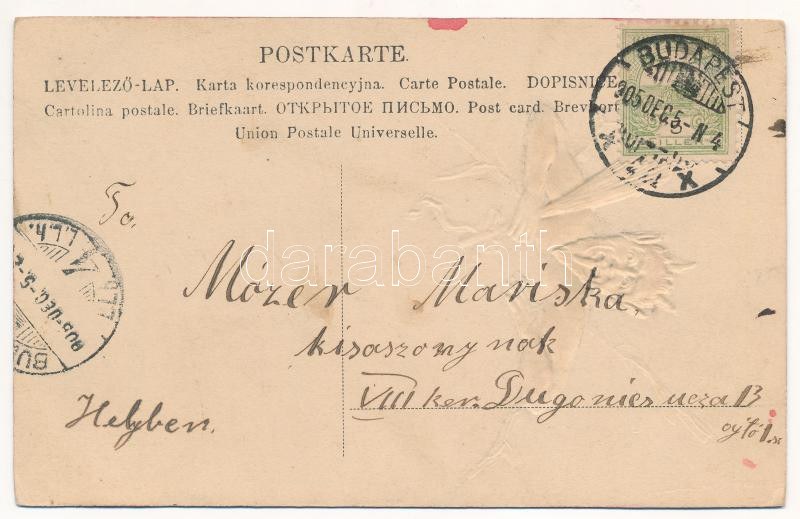 POSTKARTE.
LEVELEZŐ-LAP. Karta korespondencyjna. Carte Postale. DOPISNICE
Cartolina postale. Briefkaart. ОТКРЫТОЕ ПИСЬМО. Post card. Brevkort
Union Postale Universelle.
BUDAPEST
905 DEC. 5 - N 4
To.
Mózer Mariska,
kisaszonynak
VIII ker. Dugonics ucza 13
Helyben.
darabanth